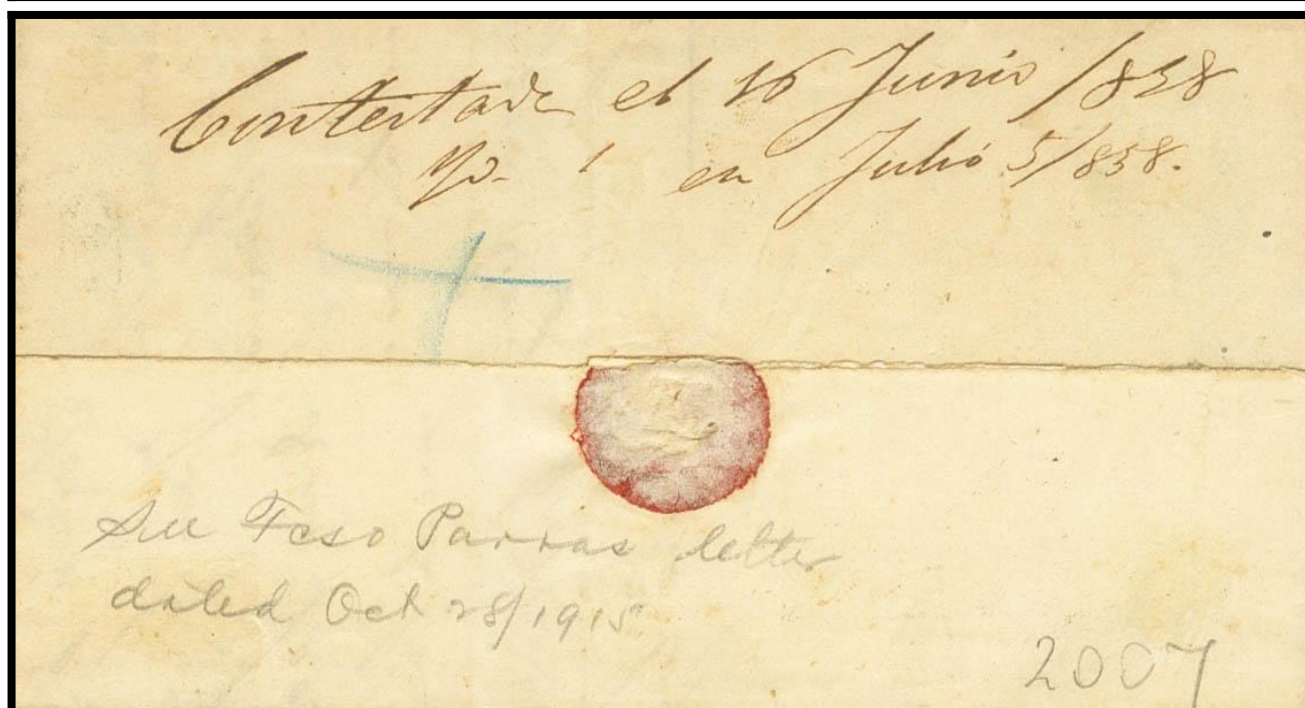 Contestada el 16 Junio /858
en Julio 5/858.
See Fcso Parras letter
dated Oct 28/1915
2007